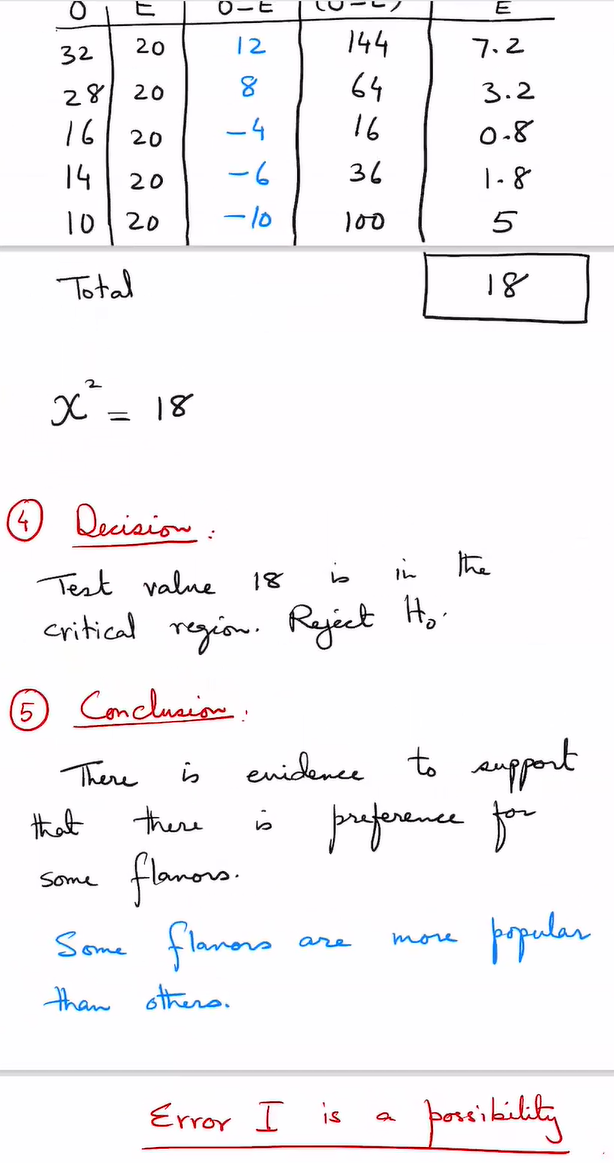 O E O-E (O-E)² E
32 20 12 144 7.2
28 20 8 64 3.2
16 20 -4 16 0.8
14 20 -6 36 1.8
10 20 -10 100 5
Total 18
x² = 18
④ Decision :
Test value 18 is in the
critical region. Reject H₀.
⑤ Conclusion :
There is evidence to support
that there is preference for
some flavors.
Some flavors are more popular
than others.
Error I is a possibility